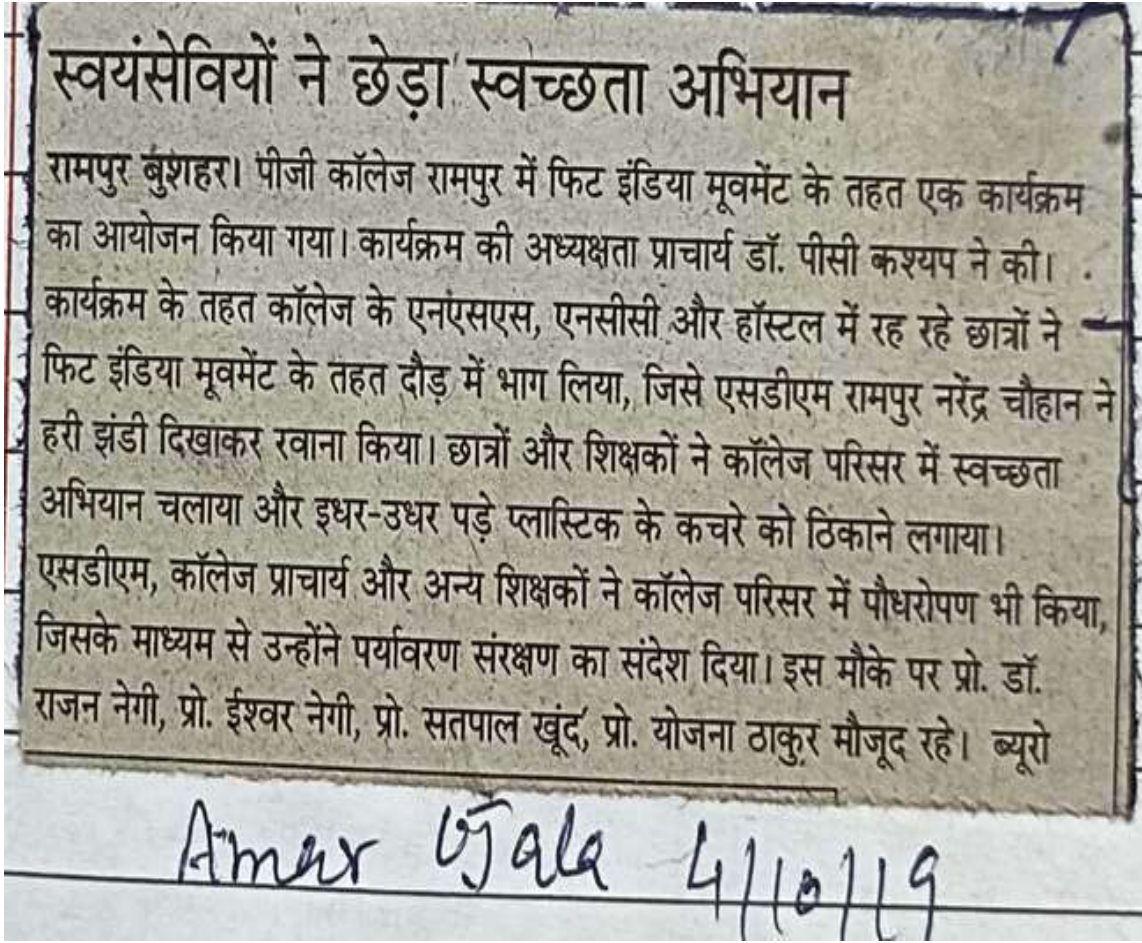 स्वयंसेवियों ने छेड़ा स्वच्छता अभियान
रामपुर बुशहर। पीजी कॉलेज रामपुर में फिट इंडिया मूवमेंट के तहत एक कार्यक्रम
का आयोजन किया गया। कार्यक्रम की अध्यक्षता प्राचार्य डॉ. पीसी कश्यप ने की।
कार्यक्रम के तहत कॉलेज के एनएसएस, एनसीसी और हॉस्टल में रह रहे छात्रों ने
फिट इंडिया मूवमेंट के तहत दौड़ में भाग लिया, जिसे एसडीएम रामपुर नरेंद्र चौहान ने
हरी झंडी दिखाकर रवाना किया। छात्रों और शिक्षकों ने कॉलेज परिसर में स्वच्छता
अभियान चलाया और इधर-उधर पड़े प्लास्टिक के कचरे को ठिकाने लगाया।
एसडीएम, कॉलेज प्राचार्य और अन्य शिक्षकों ने कॉलेज परिसर में पौधरोपण भी किया,
जिसके माध्यम से उन्होंने पर्यावरण संरक्षण का संदेश दिया। इस मौके पर प्रो. डॉ.
राजन नेगी, प्रो. ईश्वर नेगी, प्रो. सतपाल खूंद, प्रो. योजना ठाकुर मौजूद रहे। ब्यूरो
Amar Ujala 4/10/19